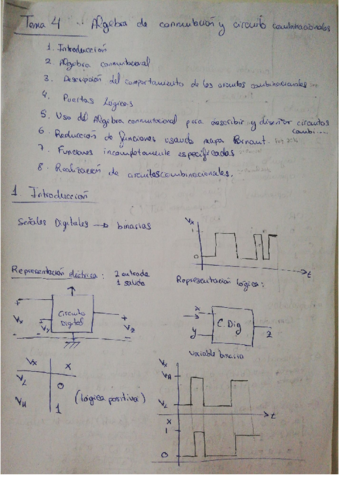 Tema 4 .- Algebra de conmutación y circuitos combinacionales
1. Introducción
2. Algebra conmutacional
3. Descripción del comportamiento de los circuitos combinacionales
4. Puertas lógicas
5. Uso del Algebra conmutacional para describir y diseñar circuitos
combi...
6. Reducción de funciones usando mapa Karnaut.
7. Funciones incompletamente especificadas
8. Realización de circuitos combinacionales.
1. Introducción
Señales Digitales → binarias
Vx
1
0
t
Representación eléctrica: 2 entradas
1 salida
Representación lógica:
Circuito
Digital
+
-
x
y
C. Dig
z
Variable binaria
Vx
x
VL
0
VH
1
(lógica positiva)
Vx
VH
VL
t
x
1
0